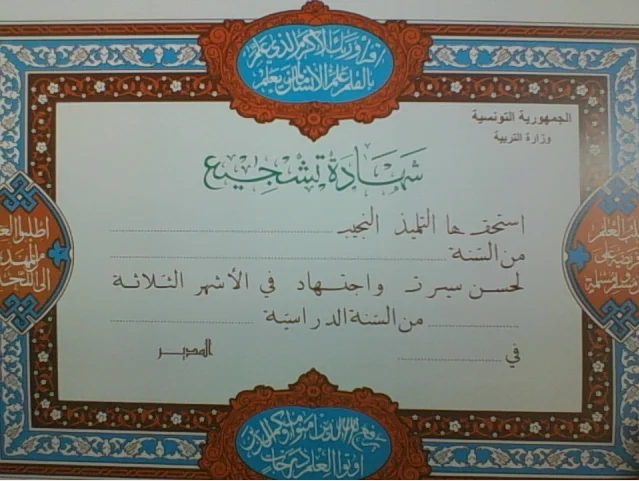 اقرأ وربك الأكرم الذي علم
بالقلم علم الإنسان ما لم يعلم
الجمهورية التونسية
وزارة التربية
شهادة تشجيع
استحقها التلميذ النجيب
من السنة
لحسن سيرته واجتهاده في الأشهر الثلاثة
من السنة الدراسية
في
المدير
اطلبوا العلم
من المهد
إلى اللحد
يرفع الله الذين آمنوا منكم والذين
أوتوا العلم درجات